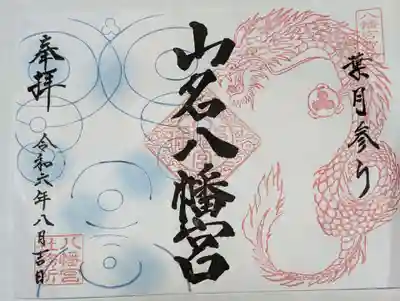 葉月参り
山名八幡宮
奉拝
令和六年八月吉日